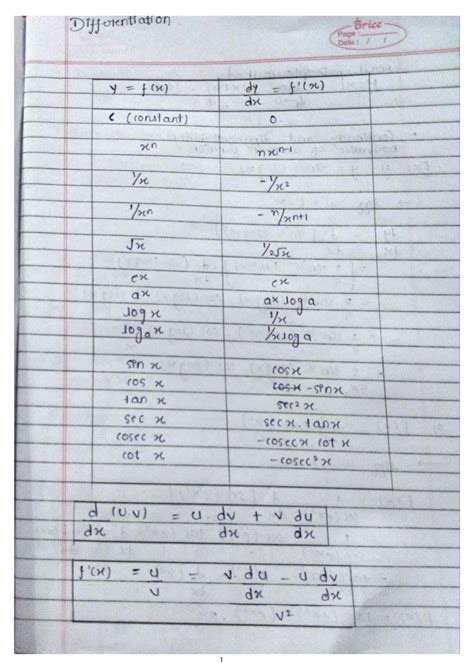 ① Differentiation
Brice
Page:
Date: / /
y = f(x) dy/dx = f'(x)
c (constant) 0
xⁿ nxⁿ⁻¹
1/x -1/x²
1/xⁿ -n/xⁿ⁺¹
√x 1/2√x
eˣ eˣ
aˣ aˣ log a
log x 1/x
logₐx 1/x log a
sin x cos x
cos x ~~cos x~~ -sin x
tan x sec² x
sec x sec x. tan x
cosec x -cosec x cot x
cot x -cosec² x
d/dx (u.v) = u. dv/dx + v du/dx
f'(x) = u/v = (v. du/dx - u dv/dx)/v²
1